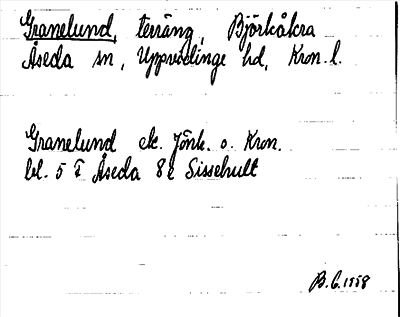 Granelund, terräng, Björkåkra
Åseda sn, Uppvidinge hd, Kron. l.
Granelund ek. Jönk. o. Kron.
bl. 5 i Åseda 8e Sissehult
B.C. 1958